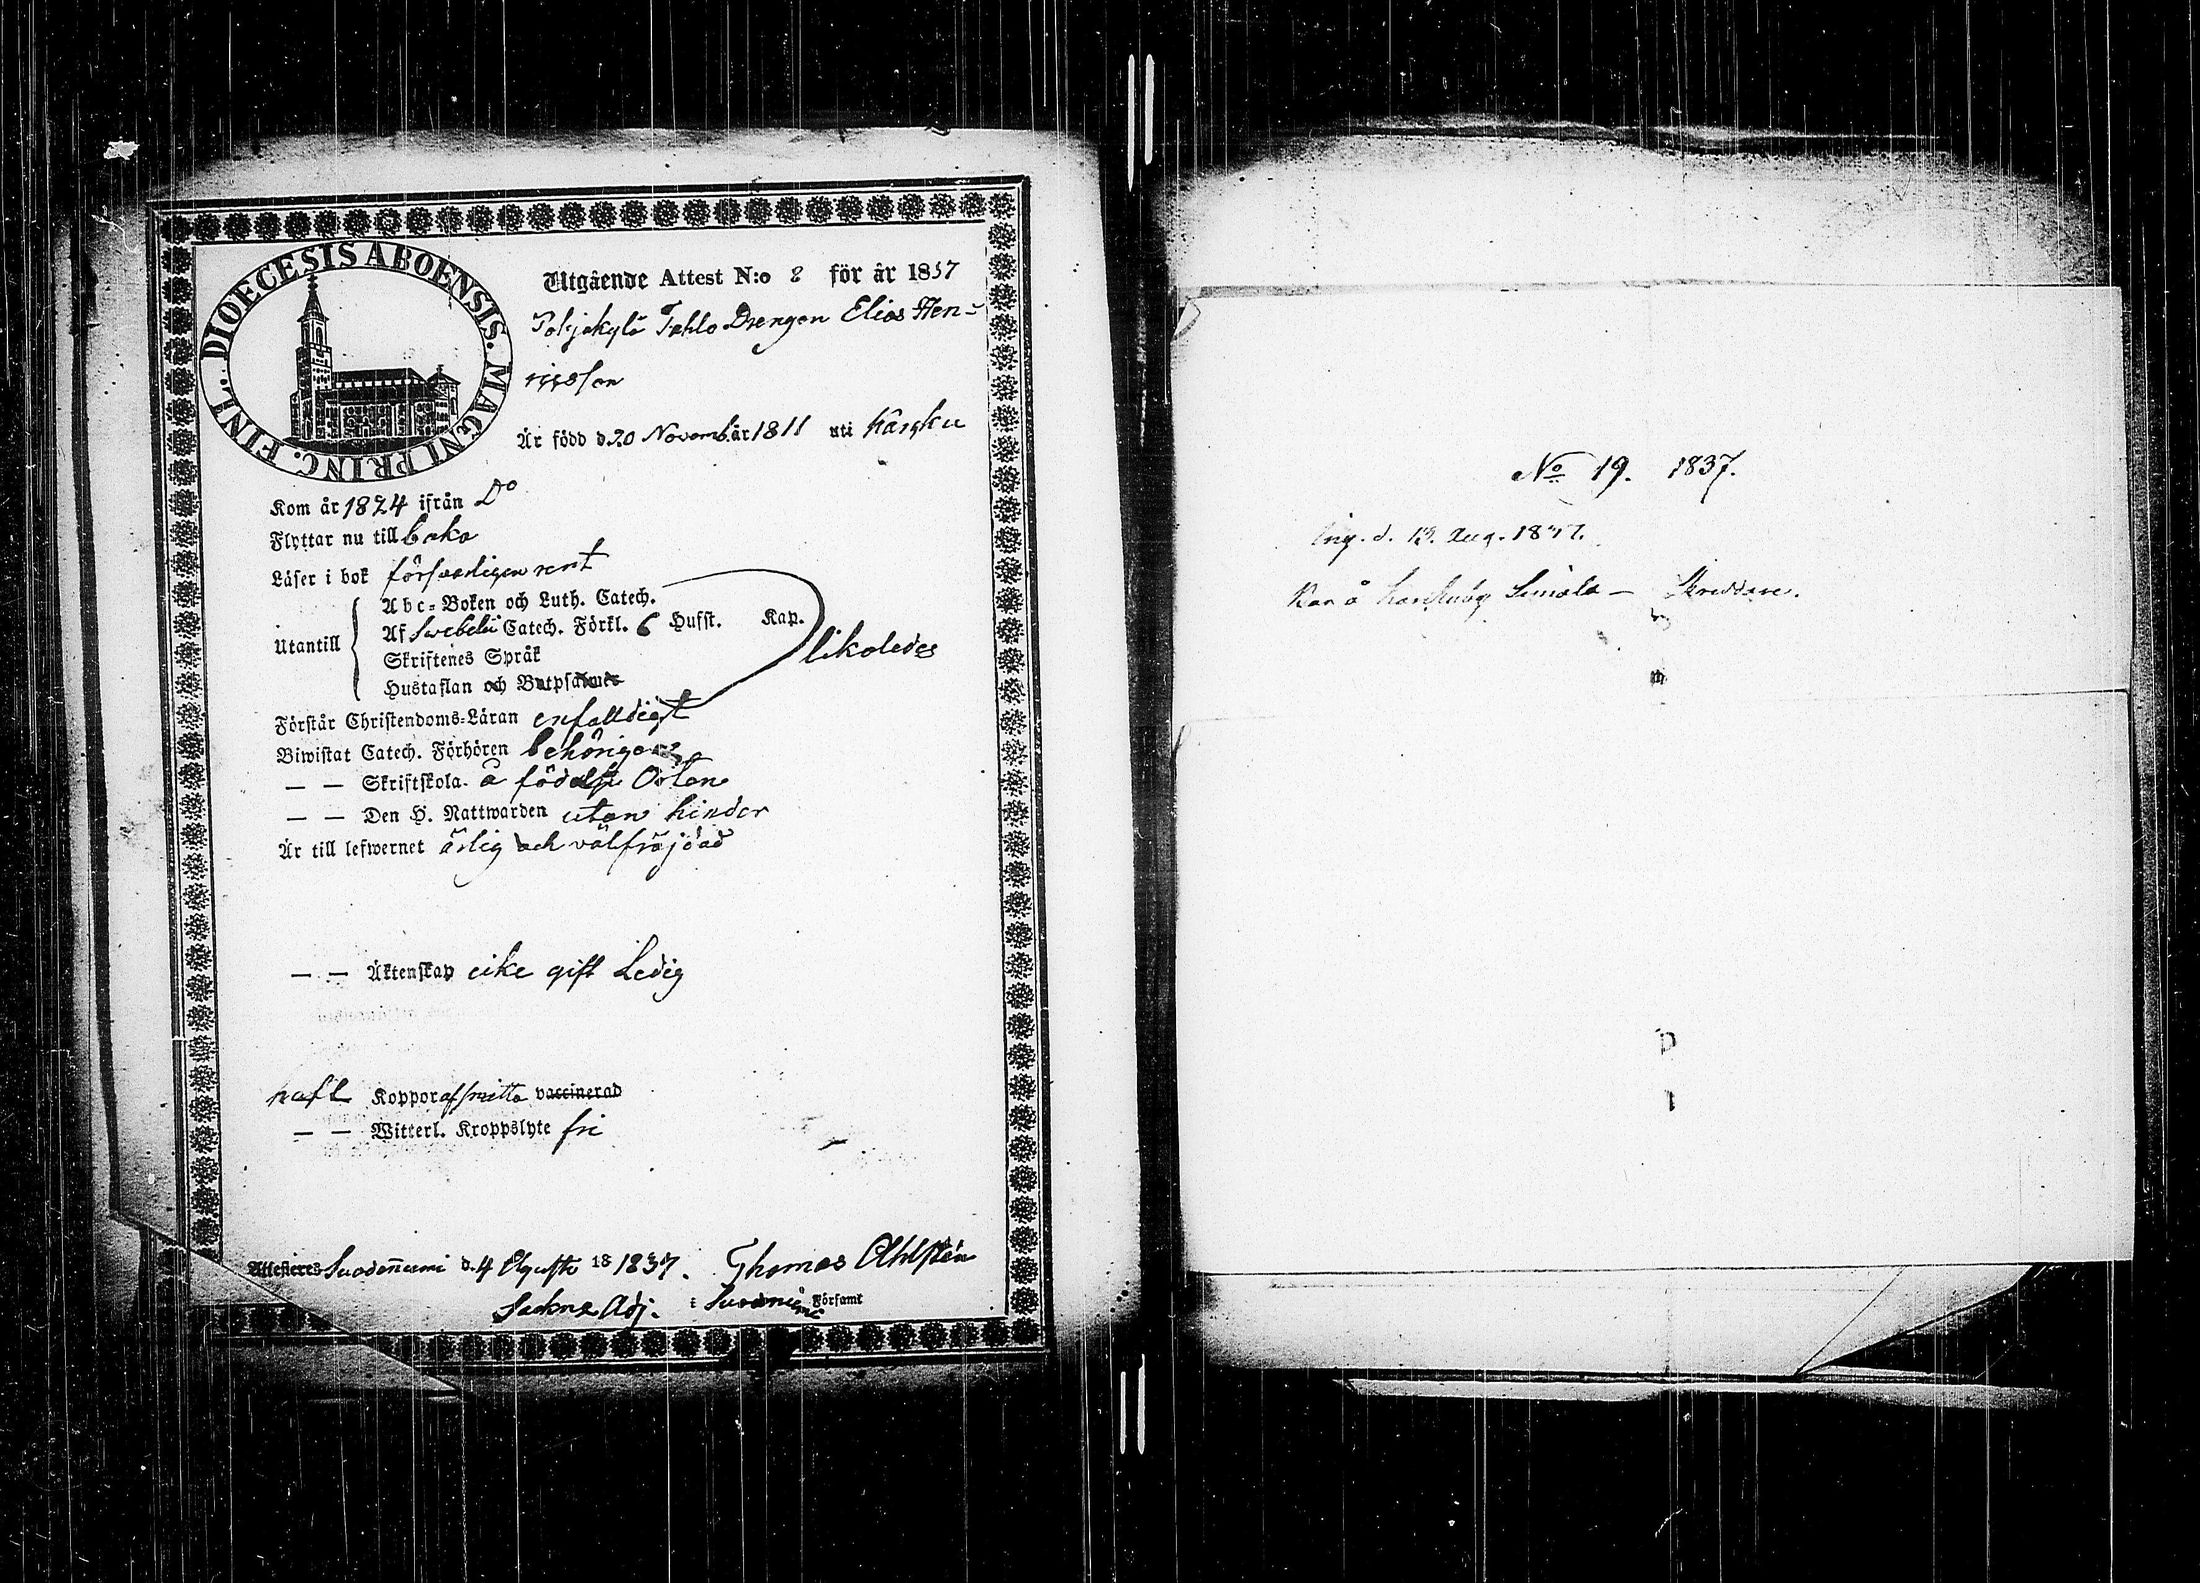 DIOECESIS ABOENSIS. MAGNI PRINC. FINL.
Utgående Attest N:o 8 för år 1837
Pohjakylä Drengen Elias Hen-
ricsson
Är född d. 20 Novemb. år 1811 uti Karkku
Kom år 1824 ifrån Do
Flyttar nu till
Läser i bok försvarligen rent
Utantill
Abc-Boken och Luth. Catech.
Af Svebelii Catech. Förkl. 6 Hufst. Kap.
Skriftenes Språk
Hustaflan och Botpsalmer
likaledes
Förstår Christendoms-Läran enfalldigt
Biwistat Catech. Förhören behörigen
— — Skriftskola. å födelse Orten
— — Den H. Nattwarden utan hinder
Är till lefwernet ärlig och välfräjdad
— — Äktenskap eike gift Ledig
haft Koppor af smitta vaccinerad
— — Witterl. Kroppslyte fri
Attesteras Suodenniemi d. 4 18 1837. Thomas Ahlstén
Adj. i Suodniemi Församl
No 19. 1837.
Ing. d. Aug. 1837.